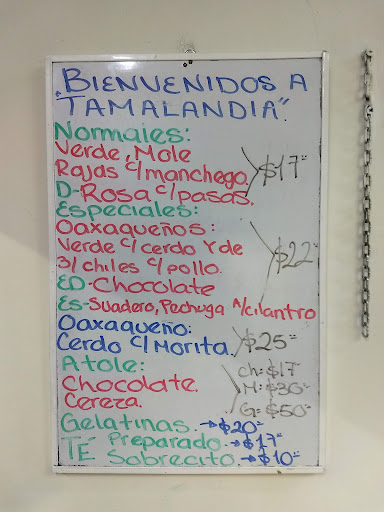 "BIENVENIDOS A
TAMALANDIA".
Normales:
Verde, Mole
Rajas c/manchego. $17=
D-Rosa c/pasas.
Especiales:
Oaxaqueños:
Verde c/cerdo Y de
3/chiles c/pollo. $22=
ED-Chocolate
Es-Suadero, Pechuga A/cilantro
Oaxaqueño:
Cerdo c/Morita. $25=
Atole: ch=$17
Chocolate. M:$30=
Cereza. G=$50=
Gelatinas.→$20=
TÉ Preparado.→$17=
Sobrecito→$10=